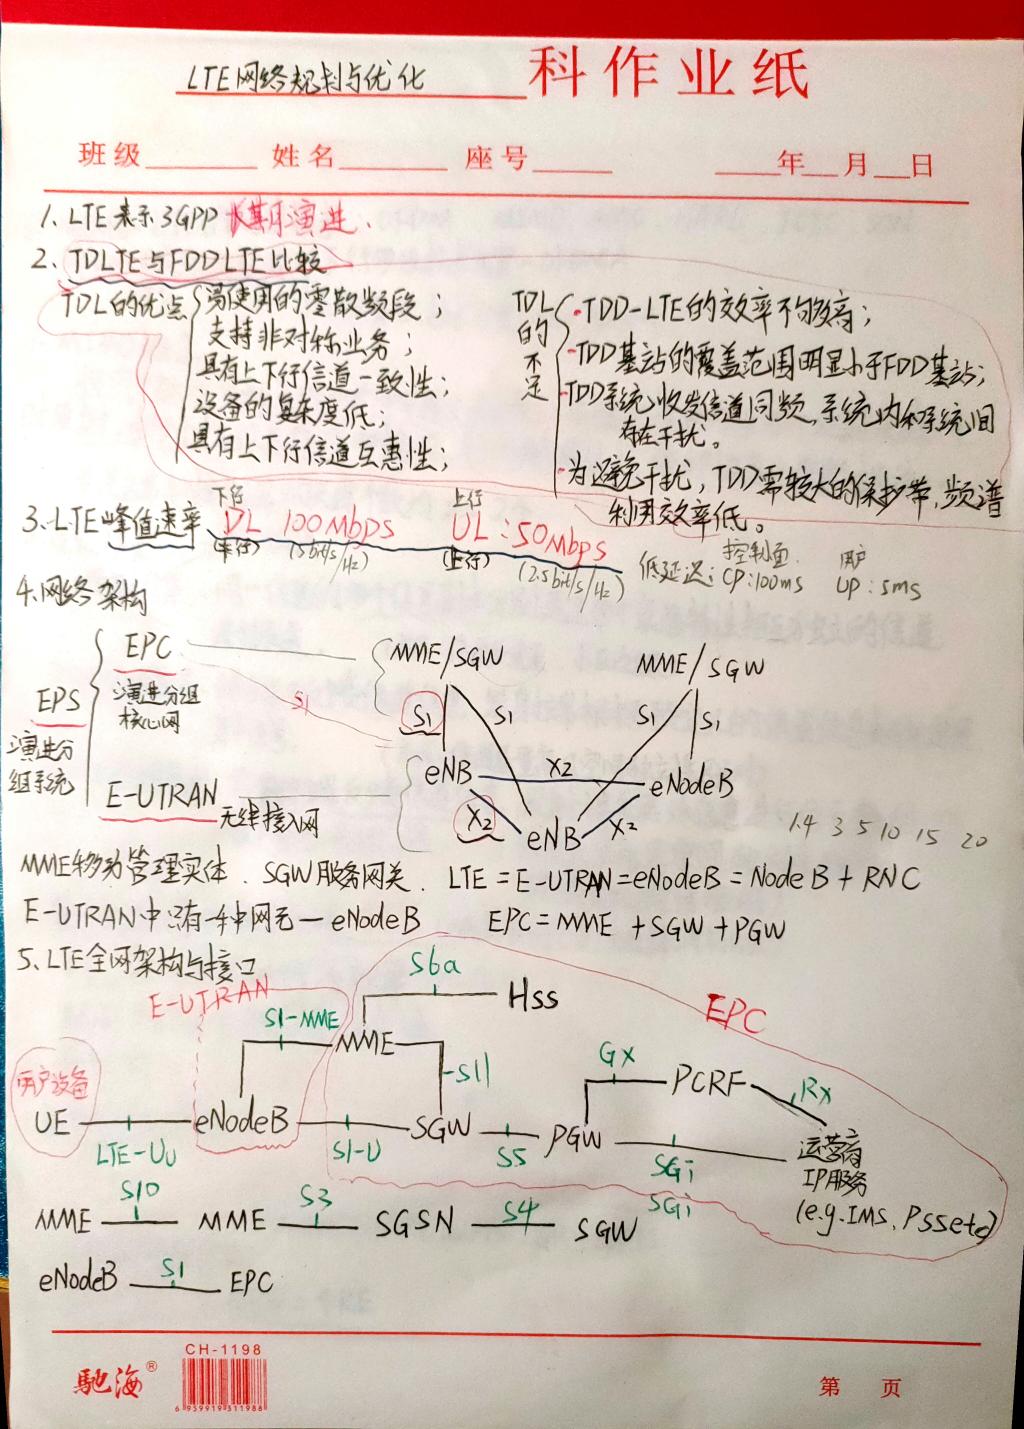 LTE网络规划与优化 科作业纸
班级 姓名 座号 年 月 日
1. LTE表示3GPP 长期演进.
2. TDLTE与FDDLTE比较
TDL的优点
易使用的零散频段；
支持非对称业务；
具有上下行信道一致性；
设备的复杂度低；
具有上下行信道互惠性；
TDL的不足
·TDD-LTE的效率不够高；
·TDD基站的覆盖范围明显小于FDD基站；
·TDD系统收发信道同频，系统内和系统间
存在干扰。
·为避免干扰，TDD需较大的保护带，频谱
利用效率低。
下行 上行
3. LTE峰值速率 DL 100Mbps UL：50Mbps
(下行) (5bit/s/Hz) (上行) (2.5bit/s/Hz)
控制面 用户
低延迟：CP：100ms UP：5ms
4. 网络架构
EPS
演进分
组系统
EPC
演进分组
核心网
E-UTRAN 无线接入网
S1
MME/SGW MME/SGW
S1 S1 S1 S1
eNB X2 eNodeB
X2 eNB X2
1.4 3 5 10 15 20
MME移动管理实体、SGW服务网关、LTE=E-UTRAN=eNodeB=NodeB+RNC
E-UTRAN中只有一种网元—eNodeB EPC=MME+SGW+PGW
5、LTE全网架构与接口
E-UTRAN
S6a
HSS
EPC
S1-MME MME
S11
用户设备
UE LTE-Uu eNodeB S1-U SGW S5 PGW SGi
Gx PCRF Rx
运营商
IP服务
(e.g.IMS、PSSetc)
SGi
MME S10 MME S3 SGSN S4 SGW
eNodeB S1 EPC
CH-1198
馳海®
6 959919 311988
第 页